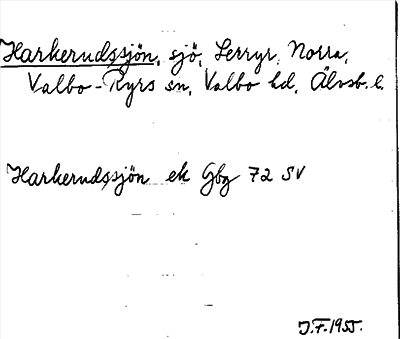 Harkerudssjön, sjö, Lerryr, Norra,
Valbo-Ryrs sn, Valbo hd, Älvsb. l.
Harkerudssjön ek Gbg 72 SV
J.F. 1955.